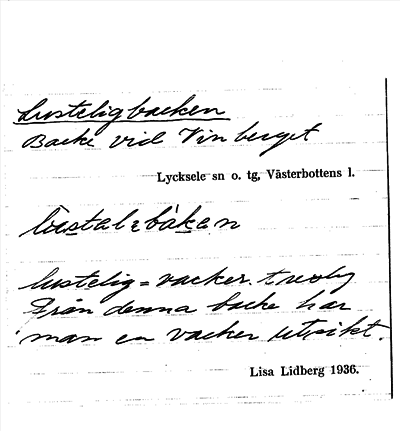 Lusteligbacken
Backe vid Vinberget
Lycksele sn o. tg, Västerbottens l.
lustelig = vacker, trevlig
Från denna backe har
man en vacker utsikt.
Lisa Lidberg 1936.